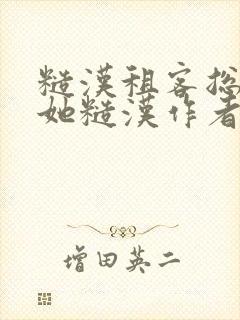 糙漢租客總
她糙漢作者
增田英二